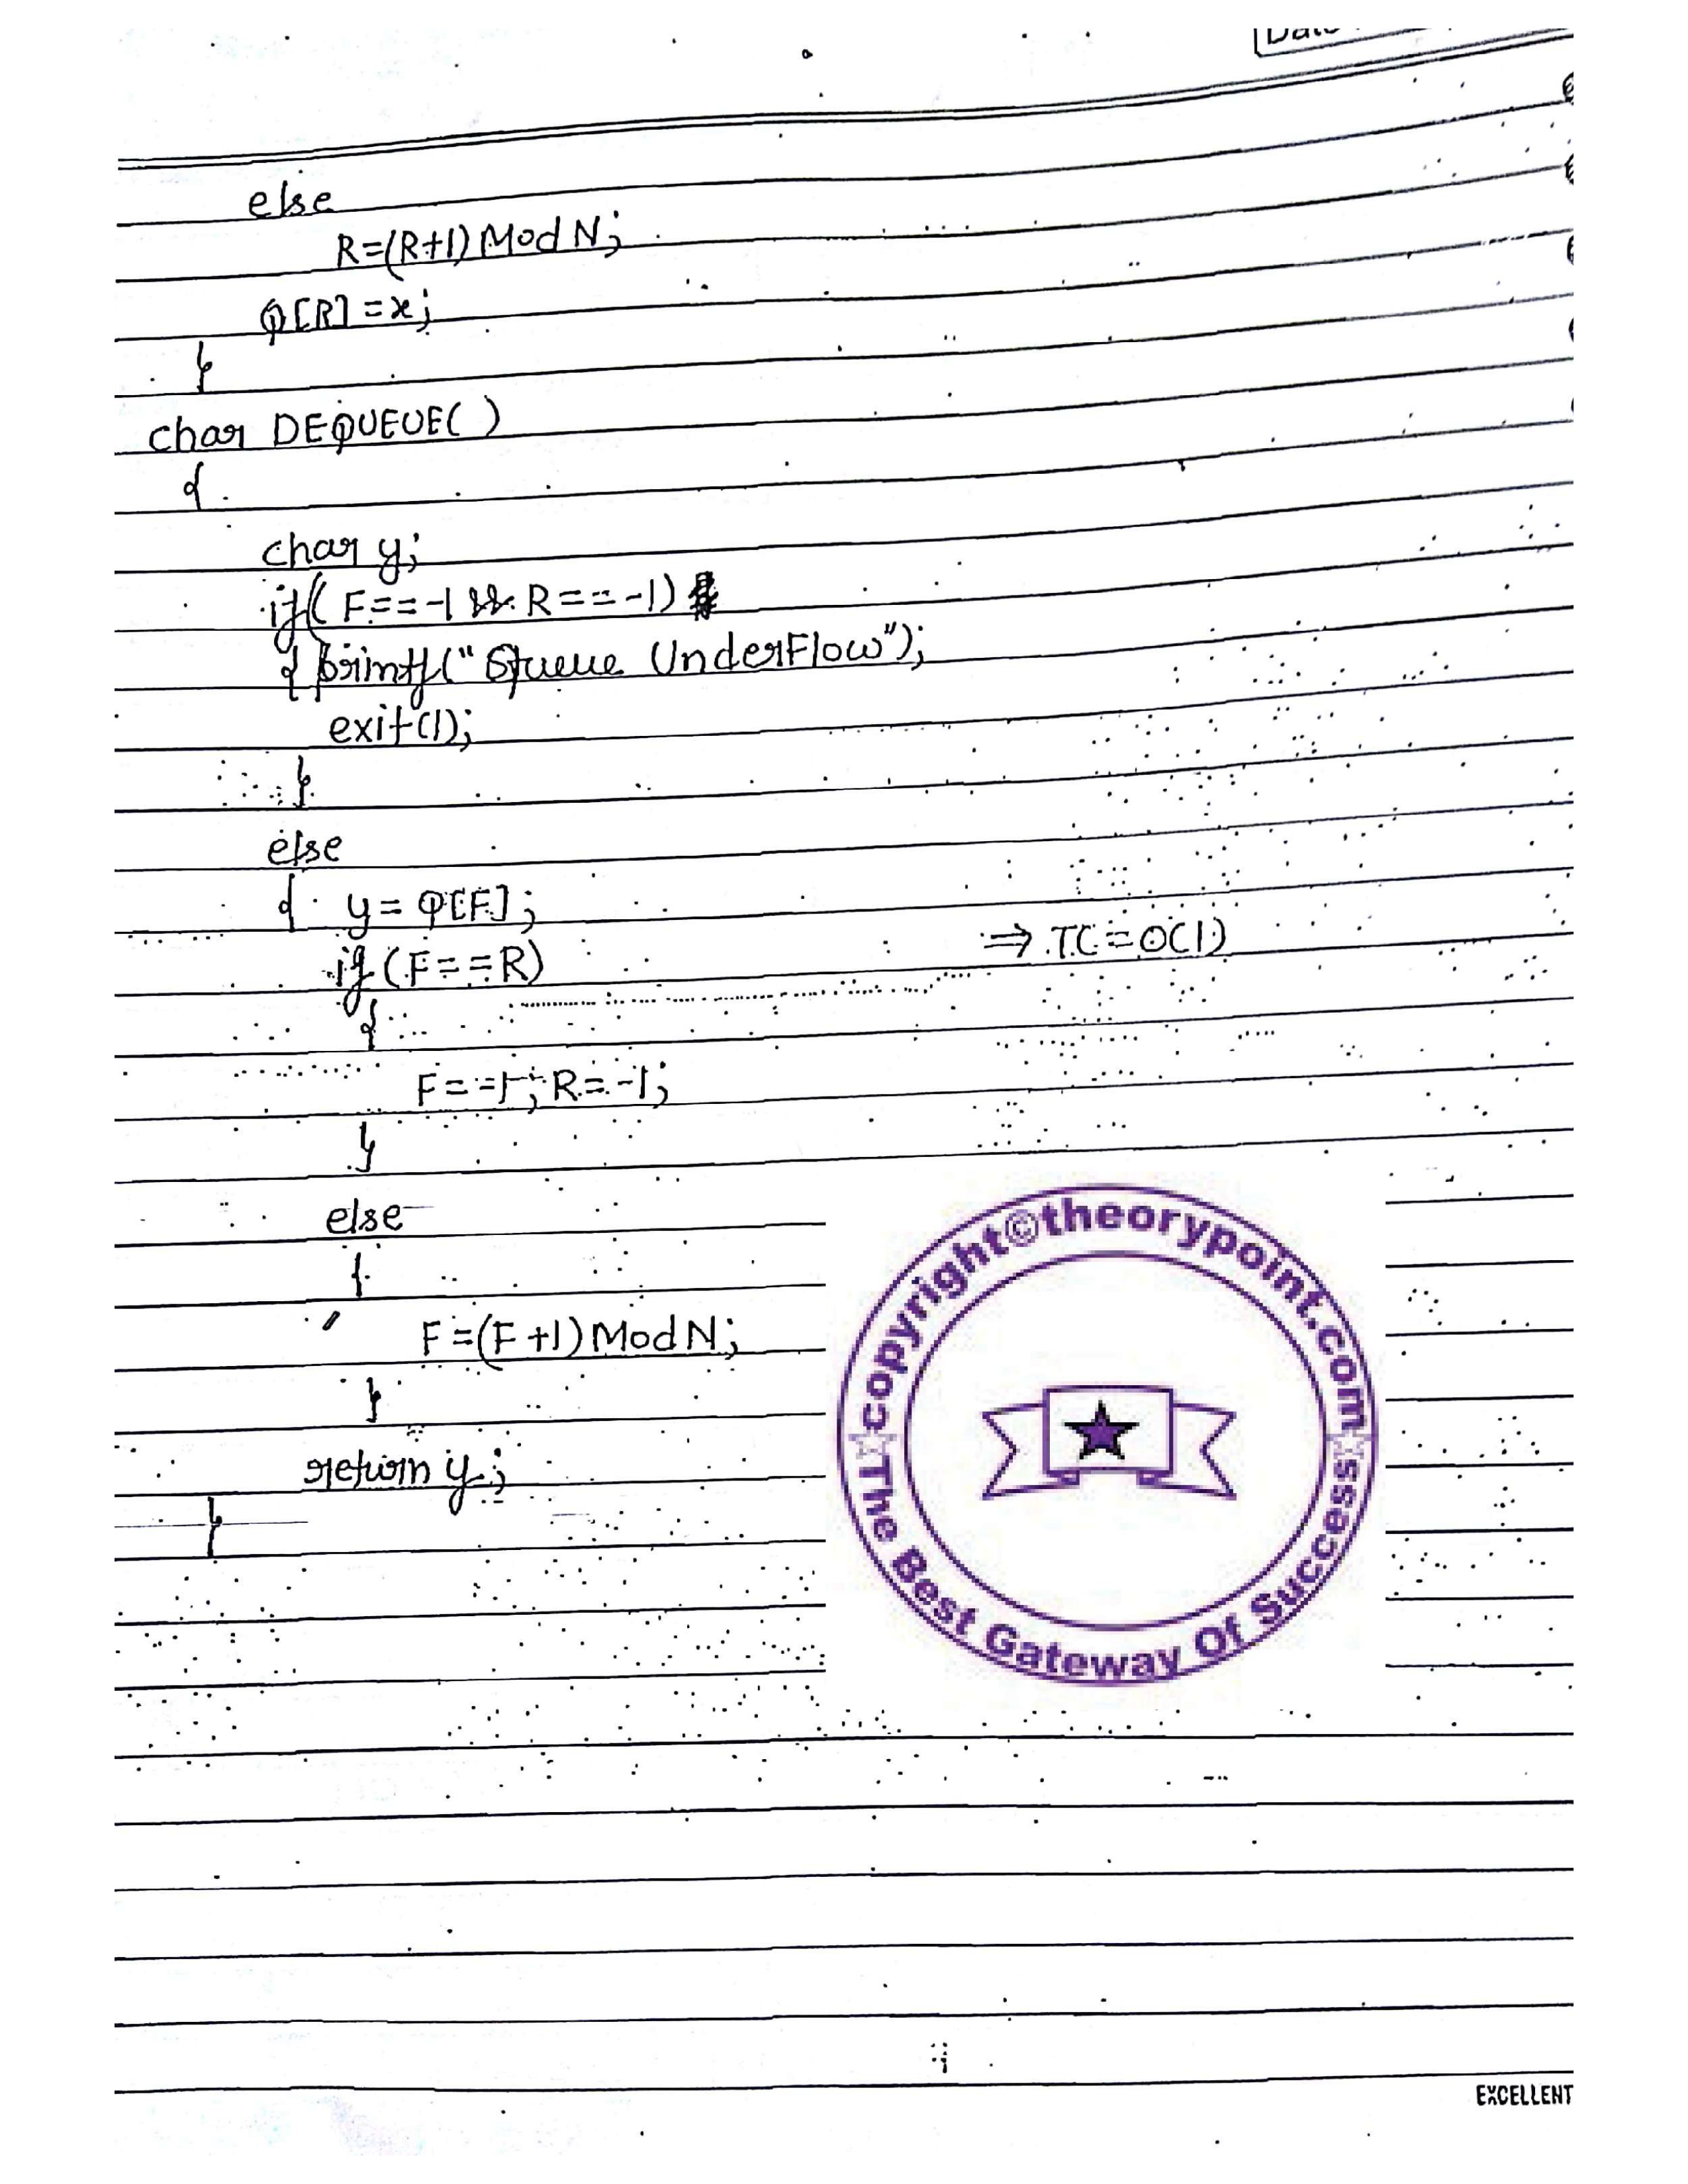 else
R=(R+1) Mod N;
Q[R]=x;
}
char DEQUEUE( )
{
char y;
if( F==-1 && R==-1)
{ printf("Queue UnderFlow");
exit(1);
}
else
{ y= Q[F];
if (F==R)
⇒ TC=O(1)
{
F=-1; R=-1;
}
else
{
F=(F+1) Mod N;
}
return y;
}
copyright©theorypoint.com
The Best Gateway Of Success
EXCELLENT